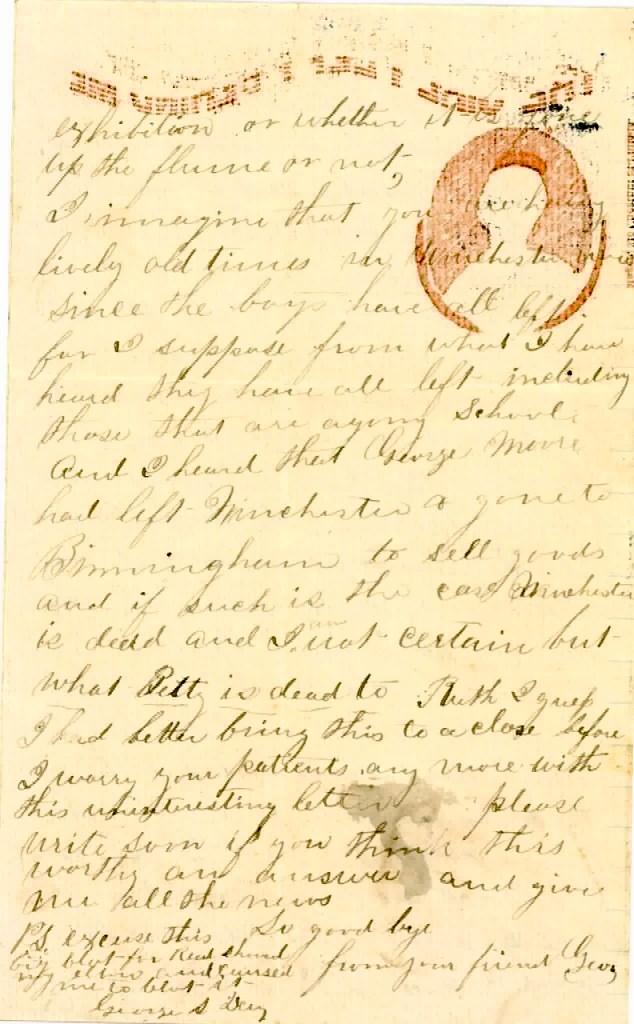 exhibition or whether it is gone
up the flume or not,
I immagine that you are having
lively old times in Winchester now
since the boys have all left
for I suppose from what I have
heard they have all left including
those that are agoing School.
And I heard that George Moore
had left Winchester & gone to
Birmingham to sell goods
and if such is the case Winchester
is dead and I am not certain but
what Petty is dead to Ruth I guess
I had better bring this to a close before
I worry your patients any more with
this uninteresting letter please
write soon if you think this
worthy an answer and give
me all the news
So good bye
from your friend Geo
P.S. excuse this
big blot for Read shoved
my elbow and caused
me to blot it
George S